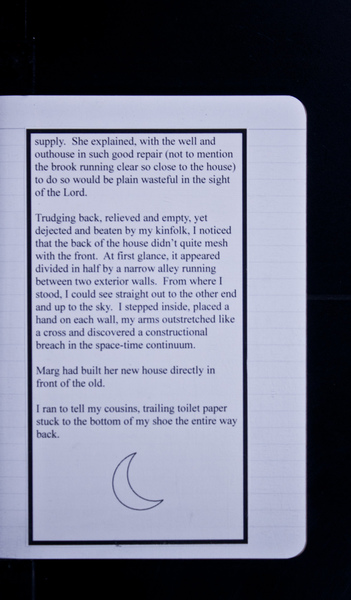 supply. She explained, with the well and
outhouse in such good repair (not to mention
the brook running clear so close to the house)
to do so would be plain wasteful in the sight
of the Lord.
Trudging back, relieved and empty, yet
dejected and beaten by my kinfolk, I noticed
that the back of the house didn't quite mesh
with the front. At first glance, it appeared
divided in half by a narrow alley running
between two exterior walls. From where I
stood, I could see straight out to the other end
and up to the sky. I stepped inside, placed a
hand on each wall, my arms outstretched like
a cross and discovered a constructional
breach in the space-time continuum.
Marg had built her new house directly in
front of the old.
I ran to tell my cousins, trailing toilet paper
stuck to the bottom of my shoe the entire way
back.